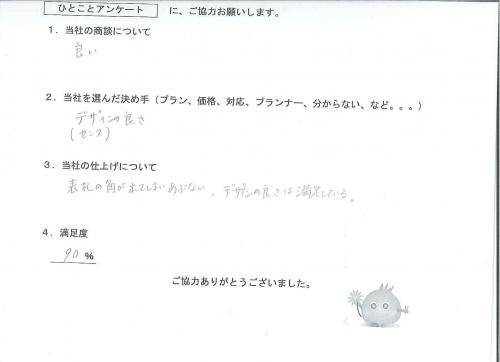 ひとことアンケート に、ご協力お願いします。
1．当社の商談について
良い
2．当社を選んだ決め手（プラン、価格、対応、プランナー、分からない、など。。。）
デザインの良さ
(センス)
3．当社の仕上げについて
表札の角が出てしまいあぶない。デザインの良さは満足している。
4．満足度
90 %
ご協力ありがとうございました。